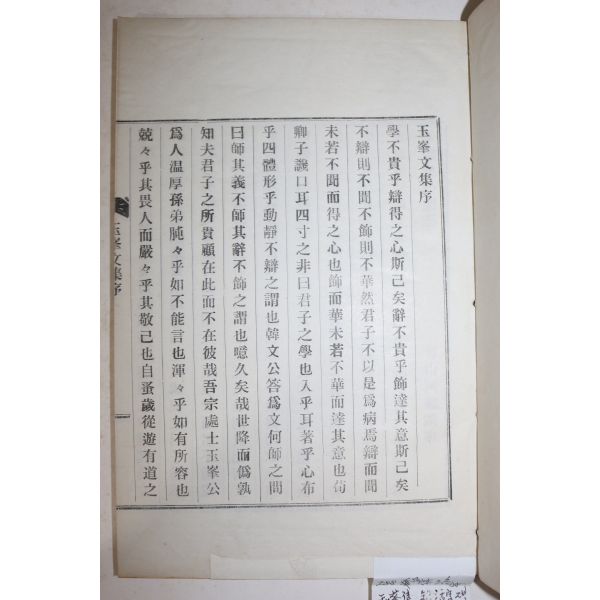 玉峯文集序
學不貴乎辯得之心斯已矣辭不貴乎飾達其意斯已矣
不辯則不聞不飾則不華然君子不以是爲病焉辯而聞
未若不聞而得之心也飾而華未若不華而達其意也荀
卿子譏口耳四寸之非曰君子之學也入乎耳著乎心布
乎四體形乎動靜不辯之謂也韓文公答爲文何師之問
曰師其義不師其辭不飾之謂也噫久矣哉世降而僞孰
知夫君子之所貴顧在此而不在彼哉吾宗處士玉峯公
爲人温厚孫弟肫々乎如不能言也渾々乎如有所容也
兢々乎其畏人而嚴々乎其敬己也自蚤歲從遊有道之
玉峯文集序